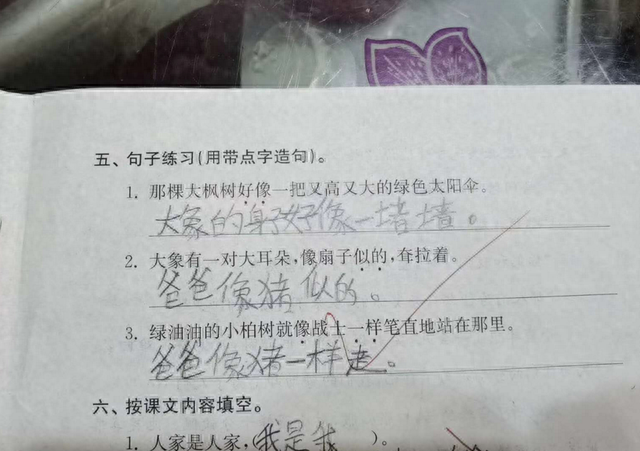 五、句子练习(用带点字造句)。
1. 那棵大枫树好像一把又高又大的绿色太阳伞。
大象的身子好像一堵墙。
2. 大象有一对大耳朵,像扇子似的,耷拉着。
爸爸像猪似的。
3. 绿油油的小柏树就像战士一样笔直地站在那里。
爸爸像猪一样走。
六、按课文内容填空。
1. 人家是人家,(我是我 )。